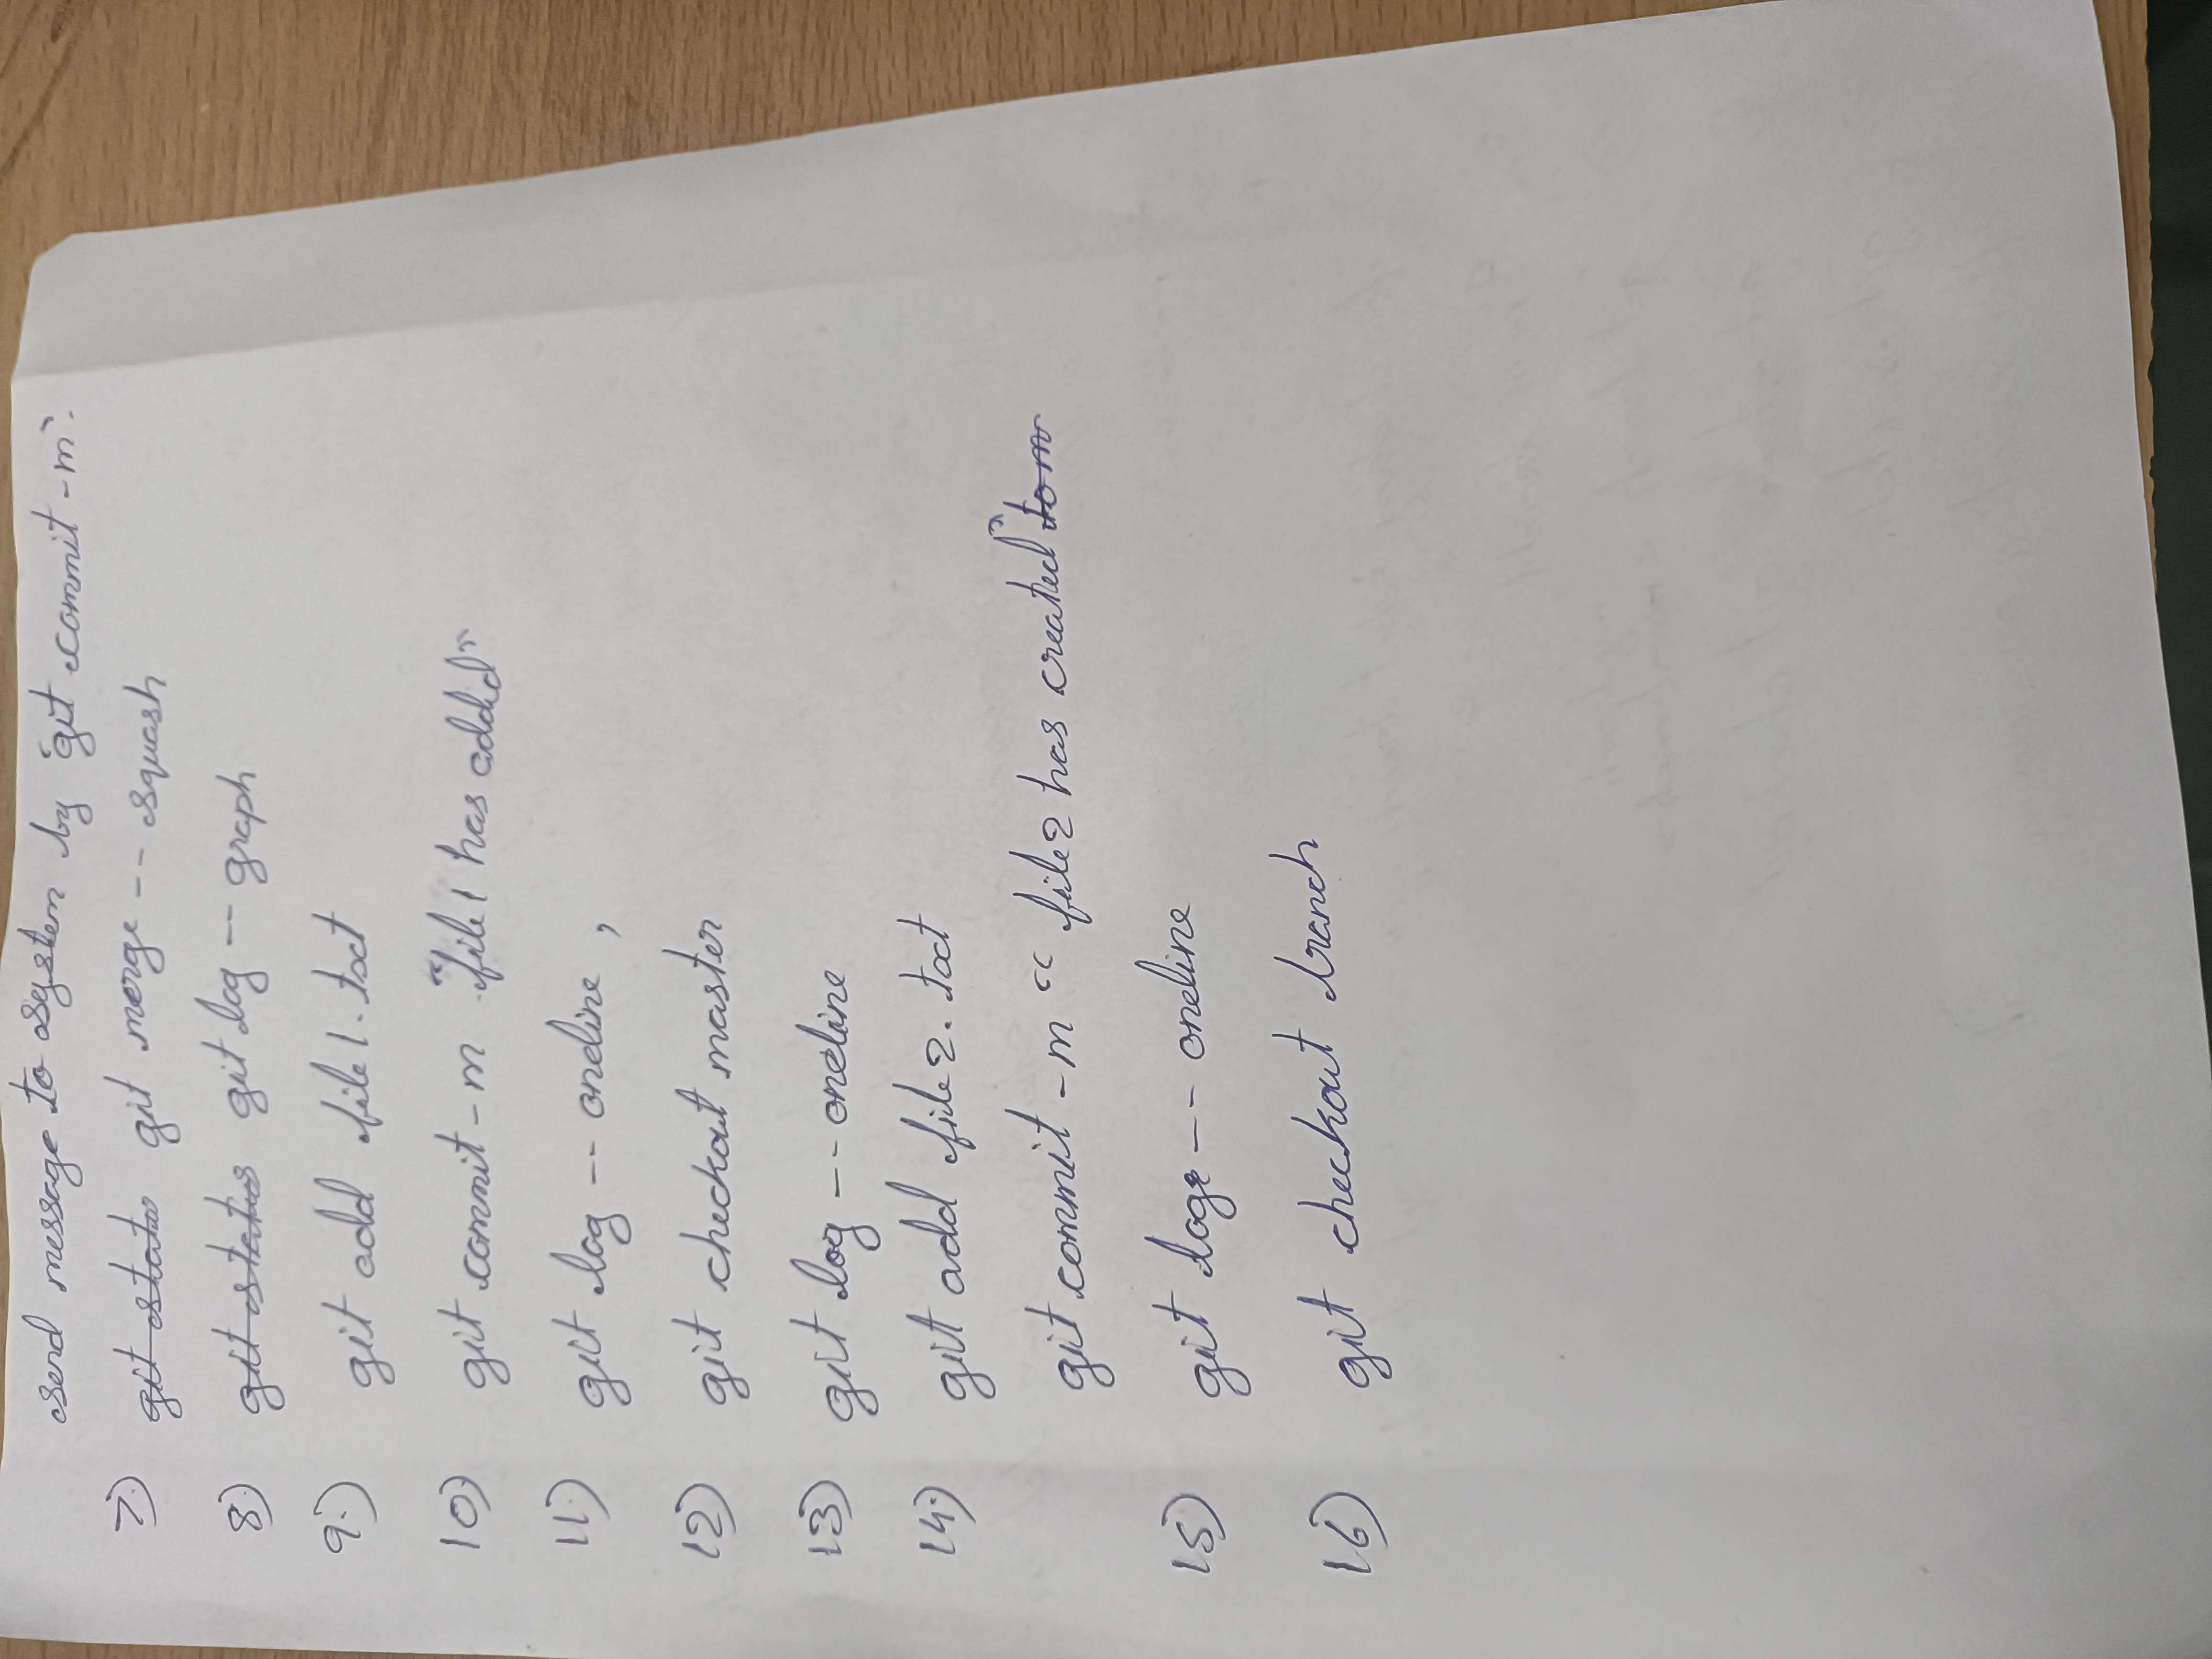 send message to system by "git commit -m".
7) git status git merge -- squash
8) git status git log -- graph
9.) git add file1.txt
10) git commit -m "file1 has added"
11) git log -- oneline ,
12) git checkout master
13) git log -- oneline
14) git add file2.txt
git commit -m " file2 has created"
15) git log -- oneline
16) git checkout branch